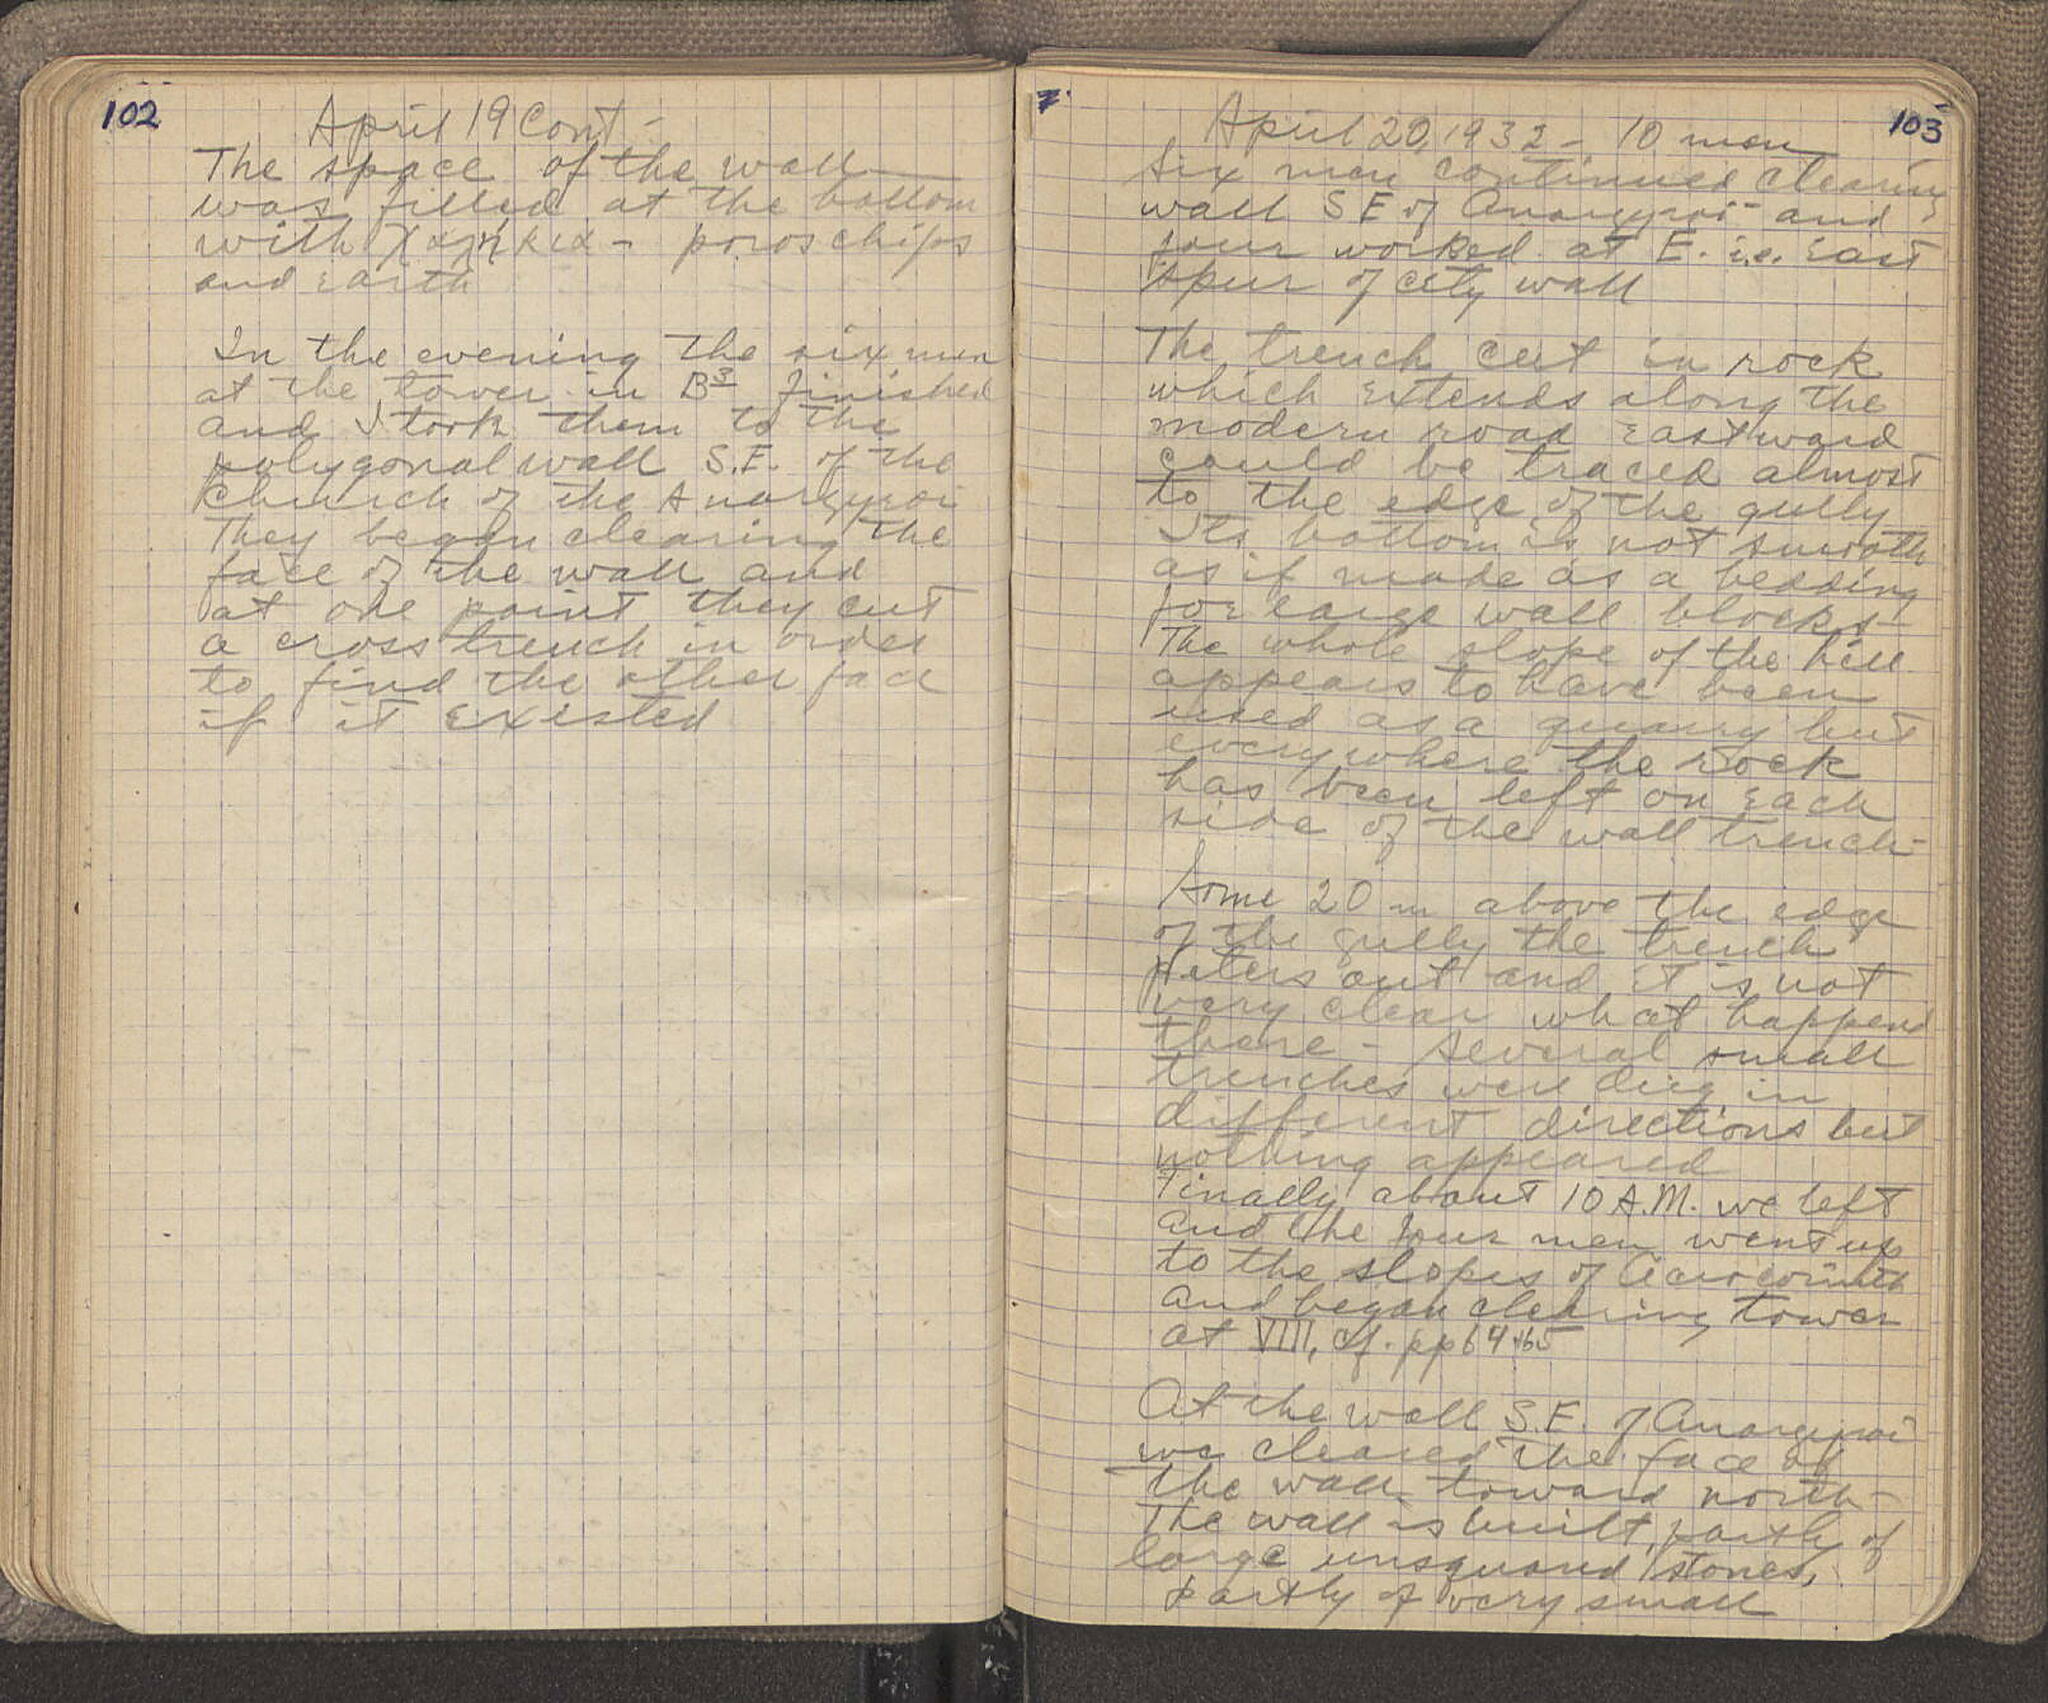 102
April 19 Cont -
The space of the wall
was filled at the bottom
with χαλίκια - poros chips
and earth
In the evening the six men
at the tower in B³ finished
and I took them to the
polygonal wall S.E. of the
church of the Anargyroi
They began clearing the
face of the wall and
at one point they cut
a cross trench in order
to find the other face
if it existed
103
April 20, 1932 - 10 men
Six men continued clearing
wall SE of Anargyroi - and
four worked at E. i.e. East
spur of city wall
The trench cut in rock
which extends along the
modern road eastward
could be traced almost
to the edge of the gully
Its bottom is not smooth
as if made as a bedding
for large wall blocks -
The whole slope of the hill
appears to have been
used as a quarry but
everywhere the rock
has been left on each
side of the wall trench -
Some 20 m above the edge
of the gully the trench
peters out and it is not
very clear what happens
there - Several small
trenches were dug in
different directions but
nothing appeared
Finally about 10 A.M. we left
and the four men went up
to the slopes of Acrocorinth
and began clearing tower
at VIII, cf. pp 64+65
At the wall S.E. of Anargyroi
we cleared the face of
the wall toward north -
The wall is built, partly of
large unsquared stones,
partly of very small